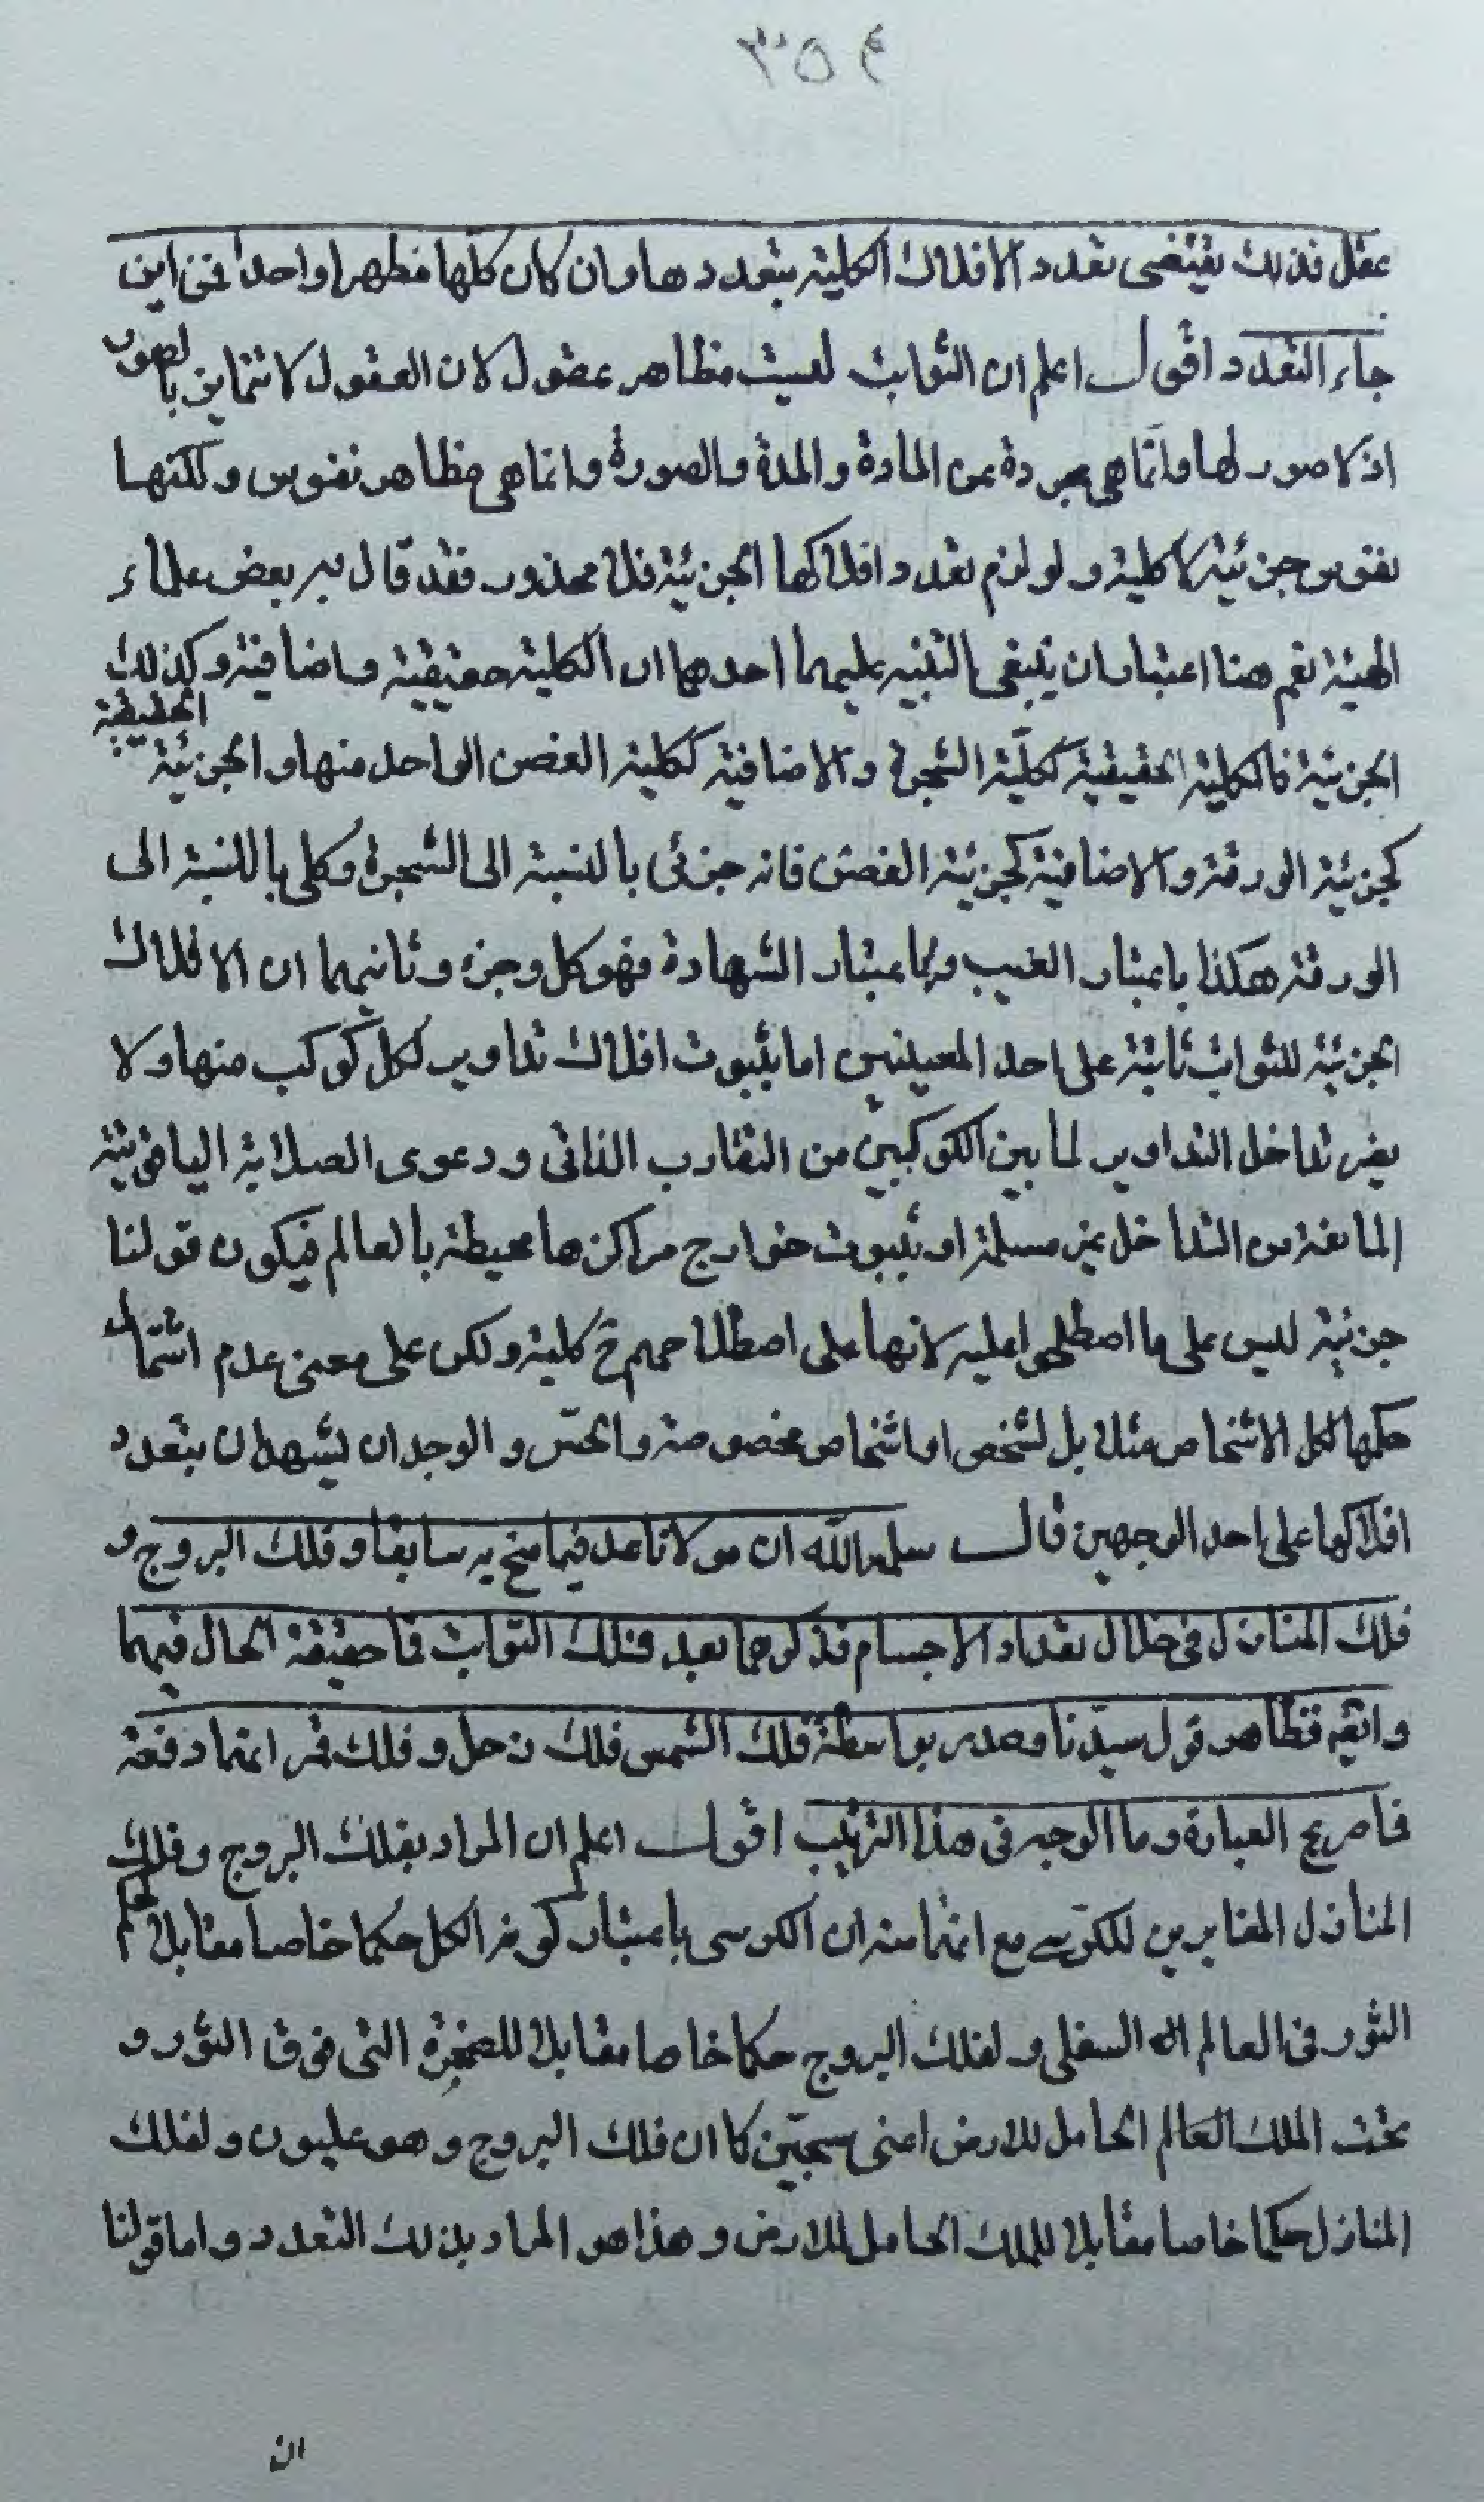 ٣٥٤
عقل فذلك يقتضى تعدد الافلاك الكلية بتعددها وان كان كلها مظهرا واحدا فمن اين
جاء التعدد اقول اعلم ان الثوابت ليست مظاهر عقول لان العقول لا تتمايز بالصور
اذ لا صور لها وانما هى مجردة عن المادة والمدة والصورة وانما هى مظاهر نفوس ولكنها
نفوس جزئية لا كلية ولو لزم تعدد افلاكها الجزئية فلا محذور فقد قال به بعض علماء
الهيئة نعم هنا اعتباران ينبغى التنبيه عليهما احدهما ان الكلية حقيقية واضافية وكذلك
الجزئية فالكلية الحقيقية ككلية الشجرة والاضافية ككلية الغصن الواحد منها والجزئية الحقيقية
كجزئية الورقة والاضافية كجزئية الغصن فانه جزئى بالنسبة الى الشجرة وكلى بالنسبة الى
الورقة هكذا باعتبار الغيب وباعتبار الشهادة فهو كل وجزء وثانيهما ان الافلاك
الجزئية للثوابت ثابتة على احد المعنيين اما بثبوت افلاك تداوير لكل كوكب منها ولا
يضر تداخل التداوير لما بين الكوكبين من التقارب الذاتى ودعوى الصلابة الياقوتية
المانعة من التداخل غير مسلمة او بثبوت خوارج مراكزها محيطة بالعالم فيكون قولنا
جزئية ليس على ما اصطلحوا عليه لانها على اصطلاحهم ح كلية ولكن على معنى عدم اشتمال
حكمها لكل الاشخاص مثلا بل لشخص او اشخاص مخصوصة والحس والوجدان يشهدان بتعدد
افلاكها على احد الوجهين قال سلمه الله ان مولانا عد فيما منح به سابقا وفلك البروج و
فلك المنازل فى خلال تعداد الاجسام فذكرهما بعد فلك الثوابت فما حقيقة الحال فيهما
وايضا فظاهر قول سيدنا وصدر بواسطة فلك الشمس فلك زحل وفلك قمر انهما دفعة
فما صريح العبارة وما الوجه فى هذا الترتيب اقول اعلم ان المراد بفلك البروج وفلك
المنازل المغايرين للكرسى مع انهما منه ان الكرسى باعتبار كونه الكل حكما خاصا مقابلا لحكم
الثور فى العالم السفلى ولفلك البروج حكما خاصا مقابلا للصخرة التى فوق الثور و
تحت الملك العالم الحامل للارض اعنى سجين كما ان فلك البروج وهو عليون ولفلك
المنازل حكما خاصا مقابلا للملك الحامل للارض وهذا هو المراد بذلك التعدد واما قولنا
ان